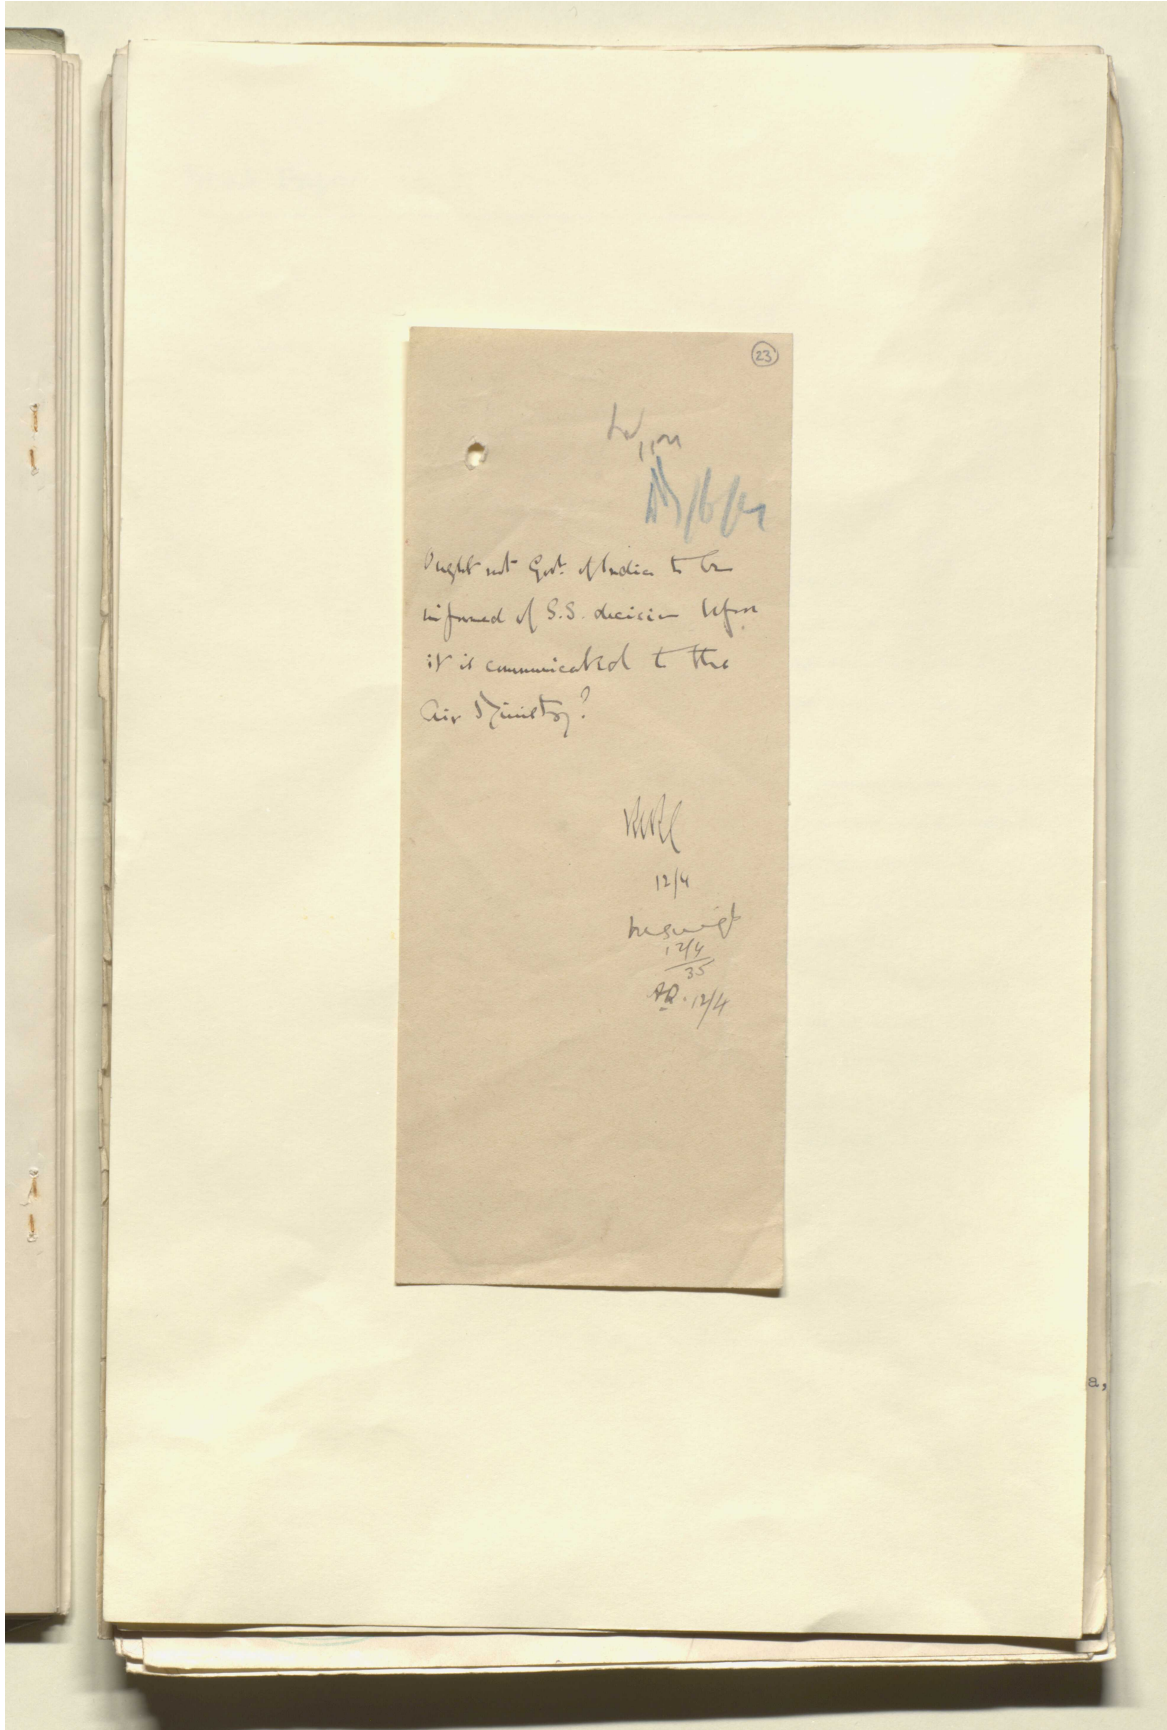 23
Ought not Govt. of India to be
informed of S.S. decision before
it is communicated to the
Air Ministry?
12/4
12/4
35
AR. 12/4
a,